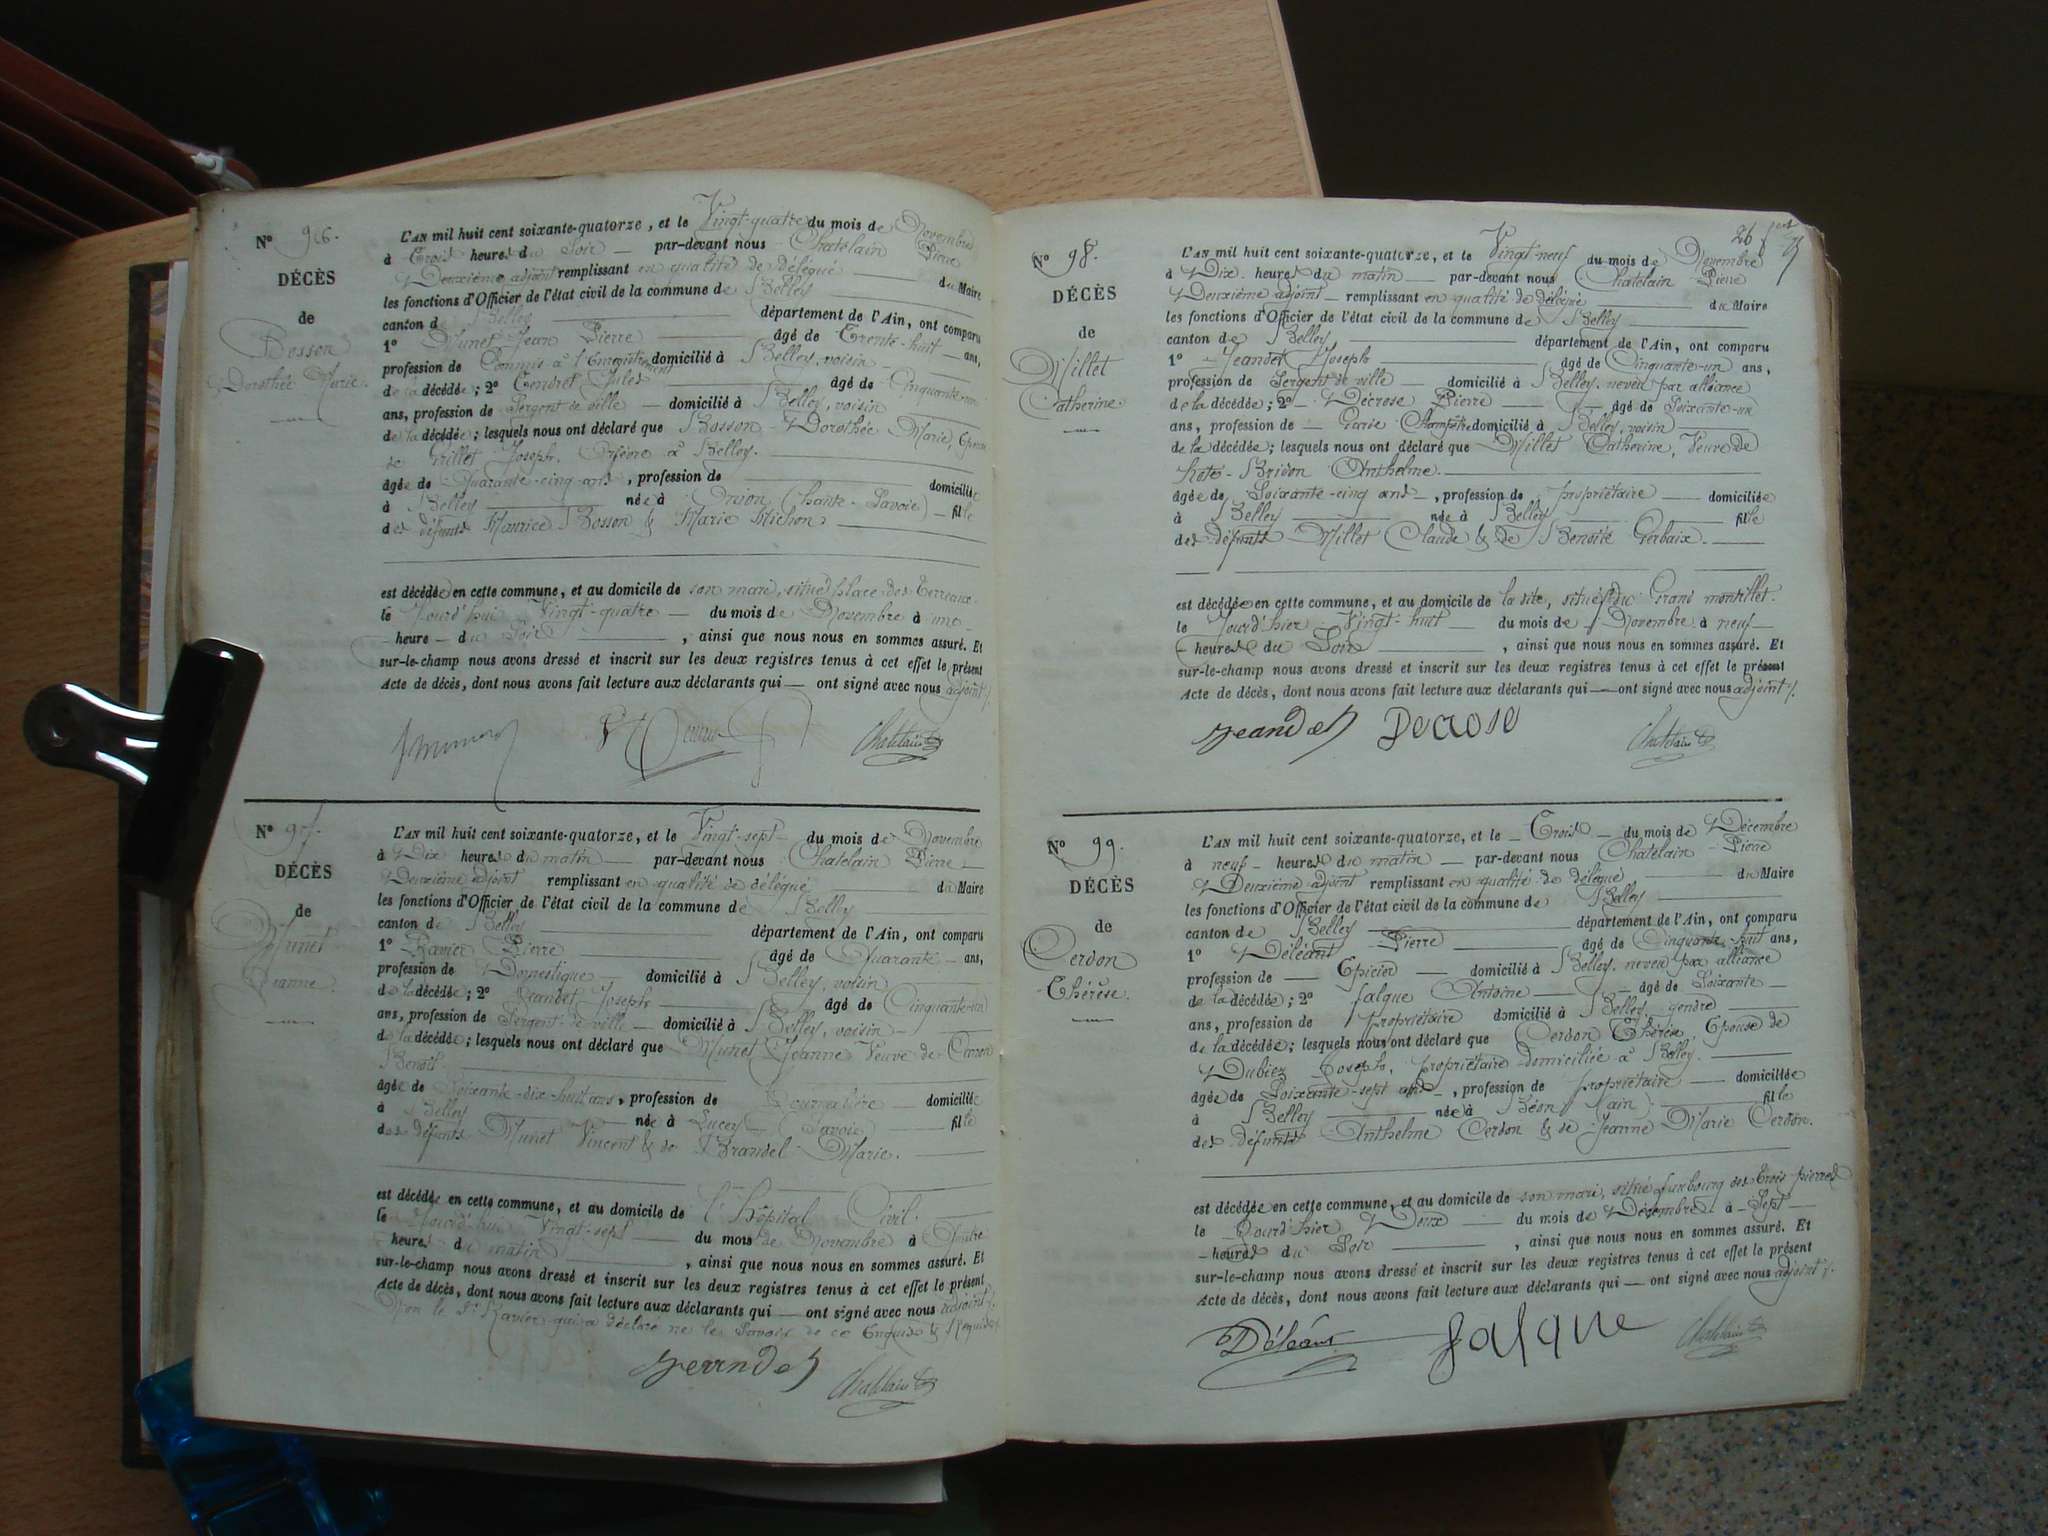 N° 96.
DÉCÈS
de
Bosson
Dorothée Marie.
L'AN mil huit cent soixante-quatorze, et le Vingt-quatre du mois de Novembre
à Trois heures du Soir par-devant nous Chatelain Pierre
Deuxième adjoint remplissant en qualité de délégué du Maire
les fonctions d'Officier de l'état civil de la commune de Belley
canton de Belley département de l'Ain, ont comparu
1° Munet Jean Pierre âgé de Trente-huit ans,
profession de Commis à l'Enregistrement domicilié à Belley, voisin
de la décédée; 2° Gendret Jules âgé de Cinquante-un
ans, profession de Sergent de ville domicilié à Belley, voisin
de la décédée; lesquels nous ont déclaré que Bosson Dorothée Marie, Epouse
de Millet Joseph, Orfèvre à Belley.
âgée de Quarante-cinq ans, profession de domiciliée
à Belley née à Onion (haute-Savoie) fille
des défunts Maurice Bosson & Marie Michon
est décédée en cette commune, et au domicile de son mari, situé place des Terreaux.
le Jourd'hui Vingt-quatre du mois de Novembre à une
heure du Soir, ainsi que nous nous en sommes assuré. Et
sur-le-champ nous avons dressé et inscrit sur les deux registres tenus à cet effet le présent
Acte de décès, dont nous avons fait lecture aux déclarants qui ont signé avec nous adjoint.
Chatelain
N° 97.
DÉCÈS
de
Munet
Jeanne.
L'AN mil huit cent soixante-quatorze, et le Vingt-sept du mois de Novembre
à Dix heures du matin par-devant nous Chatelain Pierre
Deuxième adjoint remplissant en qualité de délégué du Maire
les fonctions d'Officier de l'état civil de la commune de Belley
canton de Belley département de l'Ain, ont comparu
1° Ravier Pierre âgé de Quarante ans,
profession de Domestique domicilié à Belley, voisin
de la décédée; 2° Jeandet Joseph âgé de Cinquante-un
ans, profession de Sergent de ville domicilié à Belley, voisin
de la décédée; lesquels nous ont déclaré que Munet Jeanne Veuve de Carron
Benoit.
âgée de Soixante-dix-huit ans, profession de Journalière domiciliée
à Belley née à Lucey (Savoie) fille
des défunts Munet Vincent & de Brandel Marie.
est décédée en cette commune, et au domicile de l'Hôpital Civil.
le Jourd'hui Vingt-sept du mois de Novembre à Quatre
heures du matin, ainsi que nous nous en sommes assuré. Et
sur-le-champ nous avons dressé et inscrit sur les deux registres tenus à cet effet le présent
Acte de décès, dont nous avons fait lecture aux déclarants qui ont signé avec nous adjoint.
Non le Sr Ravier qui a déclaré ne le Savoir de ce Enquis & Requis.
Jeandet Chatelain
26
N° 98.
DÉCÈS
de
Millet
Catherine.
L'AN mil huit cent soixante-quatorze, et le Vingt-neuf du mois de Novembre
à Dix heures du matin par-devant nous Chatelain Pierre
Deuxième adjoint remplissant en qualité de délégué du Maire
les fonctions d'Officier de l'état civil de la commune de Belley
canton de Belley département de l'Ain, ont comparu
1° Jeandet Joseph âgé de Cinquante-un ans,
profession de Sergent de ville domicilié à Belley, neveu par alliance
de la décédée; 2° Décrose Pierre âgé de Soixante-un
ans, profession de Garde Champêtre domicilié à Belley, voisin
de la décédée; lesquels nous ont déclaré que Millet Catherine, Veuve de
Bridon Anthelme.
âgée de Soixante-cinq ans, profession de propriétaire domiciliée
à Belley née à Belley fille
des défunts Millet Claude & de Benoite Gerbaix.
est décédée en cette commune, et au domicile de la dite, situé du Grand montillet.
le Jourd'hier Vingt-huit du mois de Novembre à neuf
heures du Soir, ainsi que nous nous en sommes assuré. Et
sur-le-champ nous avons dressé et inscrit sur les deux registres tenus à cet effet le présent
Acte de décès, dont nous avons fait lecture aux déclarants qui ont signé avec nous adjoint.
Jeandet Decrose Chatelain
N° 99.
DÉCÈS
de
Cerdon
Thérèse.
L'AN mil huit cent soixante-quatorze, et le Trois du mois de Décembre
à neuf heures du matin par-devant nous Chatelain Pierre
Deuxième adjoint remplissant en qualité de délégué du Maire
les fonctions d'Officier de l'état civil de la commune de Belley
canton de Belley département de l'Ain, ont comparu
1° Déléant Pierre âgé de Cinquante-huit ans,
profession de Epicier domicilié à Belley, neveu par alliance
de la décédée; 2° falque Antoine âgé de Soixante
ans, profession de propriétaire domicilié à Belley, gendre
de la décédée; lesquels nous ont déclaré que Cerdon Thérèse, Epouse de
Dubiez Joseph, propriétaire domiciliée à Belley.
âgée de Soixante-sept ans, profession de propriétaire domiciliée
à Belley née à Béon (ain) fille
des défunts Anthelme Cerdon & de Jeanne Marie Cerdon.
est décédée en cette commune, et au domicile de son mari, situé fauxbourg des Trois pierres
le Jourd'hier Deux du mois de Décembre à Sept
heures du Soir, ainsi que nous nous en sommes assuré. Et
sur-le-champ nous avons dressé et inscrit sur les deux registres tenus à cet effet le présent
Acte de décès, dont nous avons fait lecture aux déclarants qui ont signé avec nous adjoint.
Déléant falque Chatelain